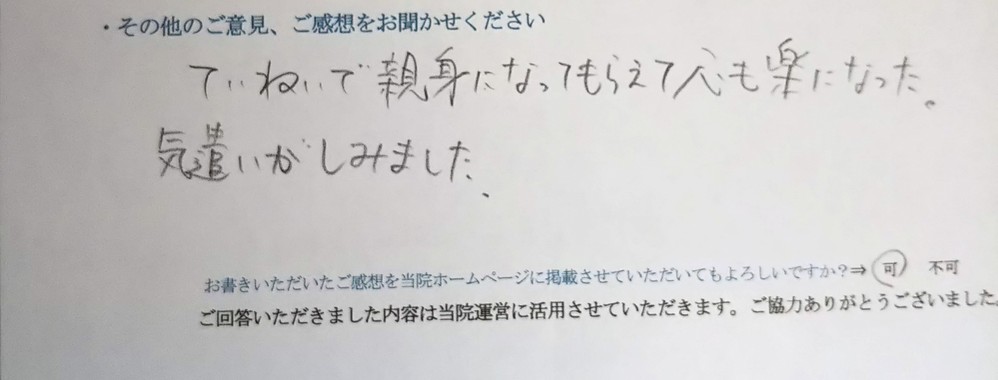 ・その他のご意見、ご感想をお聞かせください
ていねいで親身になってもらえて心も楽になった。
気遣いがしみました。
お書きいただいたご感想を当院ホームページに掲載させていただいてもよろしいですか?⇒ 可 不可
ご回答いただきました内容は当院運営に活用させていただきます。ご協力ありがとうございました。